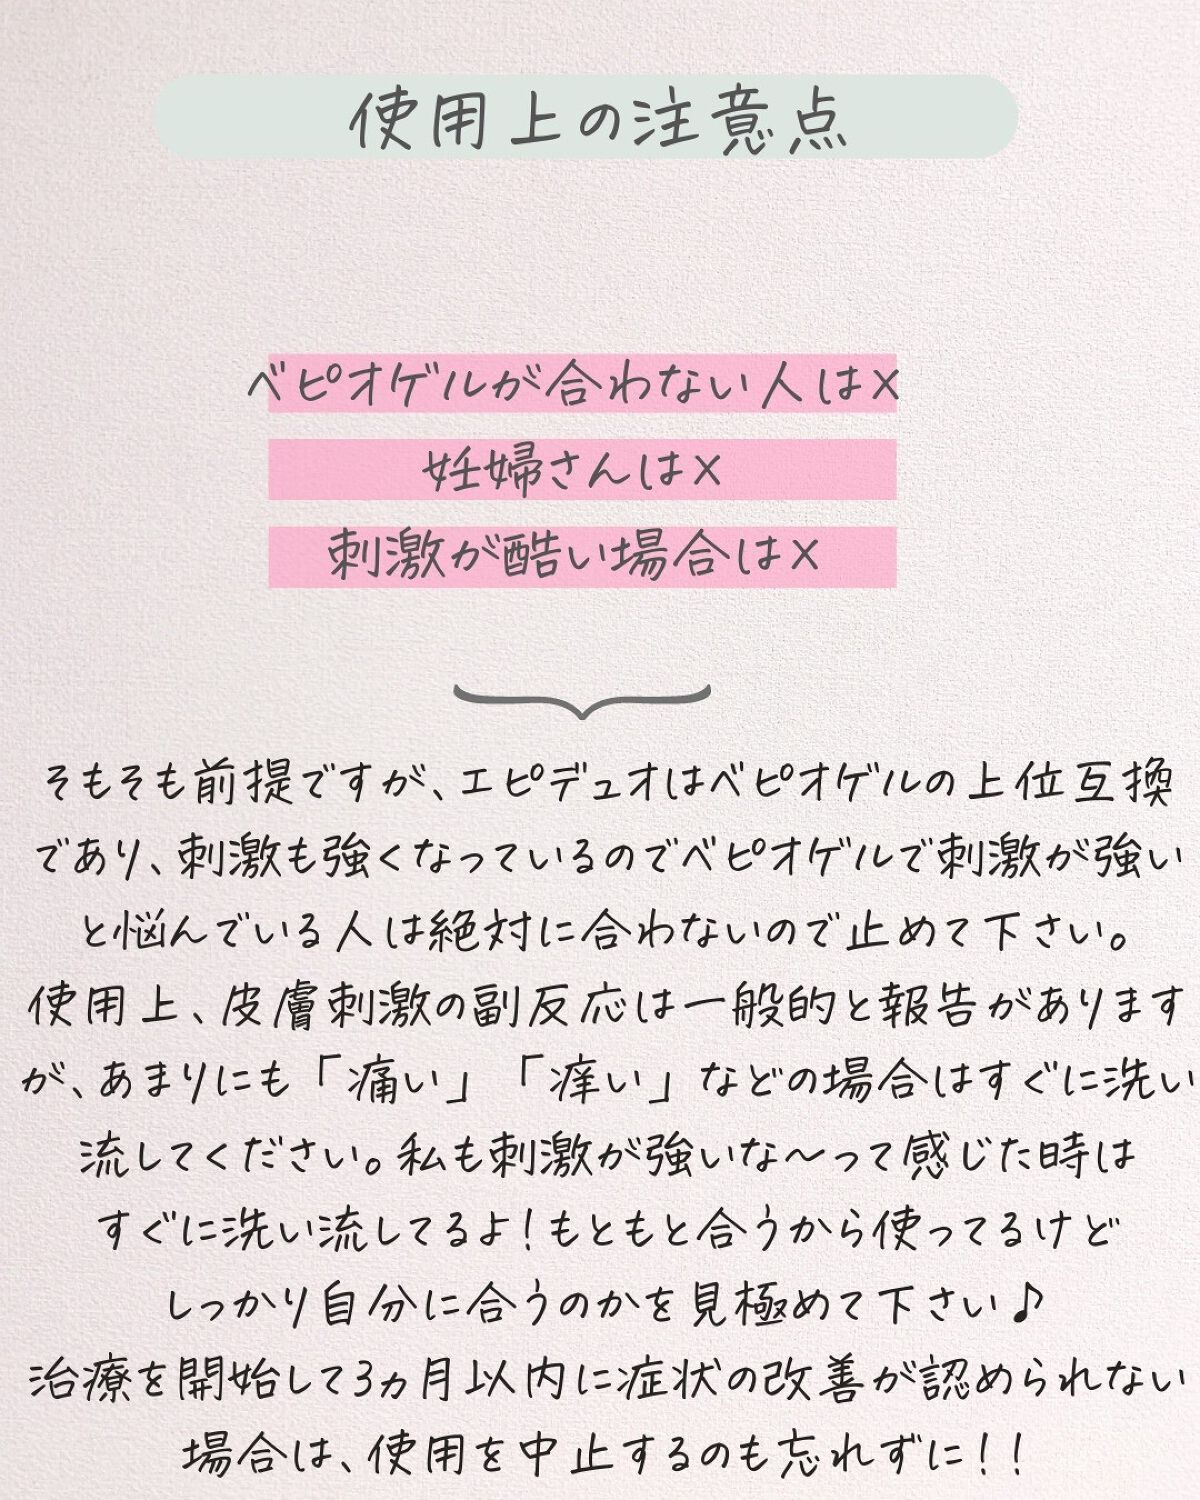 使用上の注意点
ベピオゲルが合わない人は×
妊婦さんは×
刺激が酷い場合は×
そもそも前提ですが、エピデュオはベピオゲルの上位互換
であり、刺激も強くなっているのでベピオゲルで刺激が強い
と悩んでいる人は絶対に合わないので止めて下さい。
使用上、皮膚刺激の副反応は一般的と報告があります
が、あまりにも「痛い」「痒い」などの場合はすぐに洗い
流してください。私も刺激が強いな〜って感じた時は
すぐに洗い流してるよ！もともと合うから使ってるけど
しっかり自分に合うのかを見極めて下さい♪
治療を開始して3ヵ月以内に症状の改善が認められない
場合は、使用を中止するのも忘れずに！！